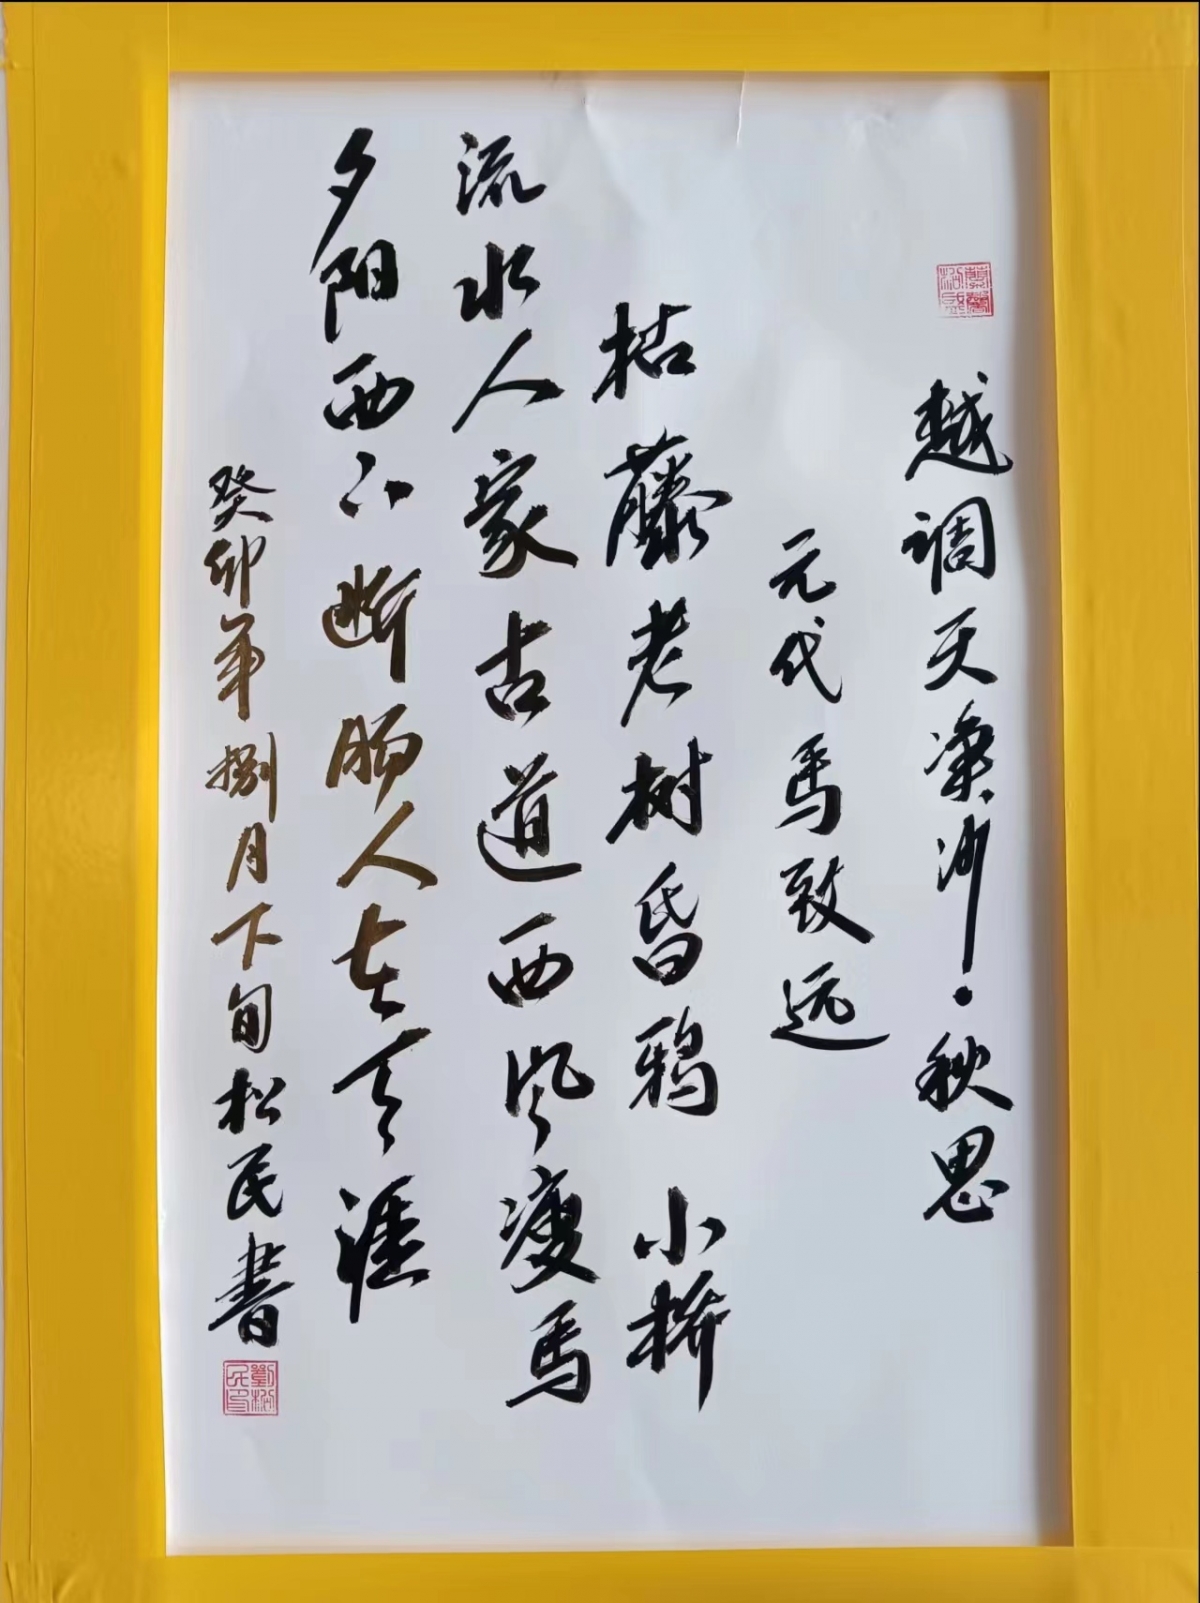 越调天净沙·秋思
元代马致远
枯藤老树昏鸦 小桥
流水人家古道西风瘦马
夕阳西下断肠人在天涯
癸卯年捌月下旬松民書
劉松民印